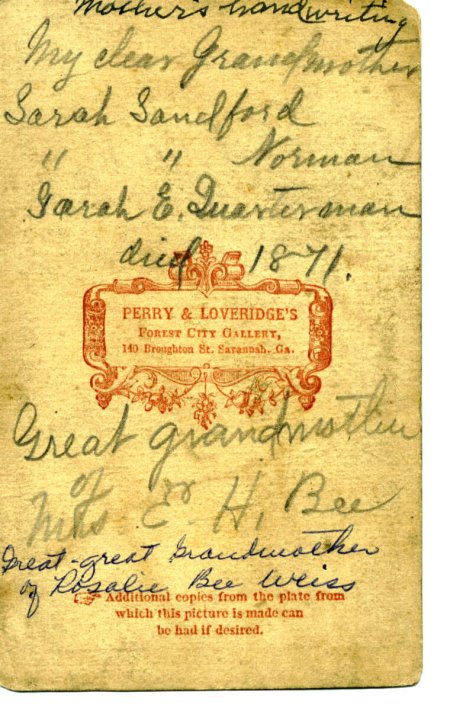 Mother's handwriting
My dear Grandmother
Sarah Sandford
" " Norman
Sarah E. Quarterman
died 1871.
PERRY & LOVERIDGE'S
FOREST CITY GALLERY,
140 Broughton St. Savannah, Ga.
Great grandmother
of
Mrs E H. Bee
Great-great Grandmother
of Rosalie Bee Weiss
Additional copies from the plate from
which this picture is made can
be had if desired.